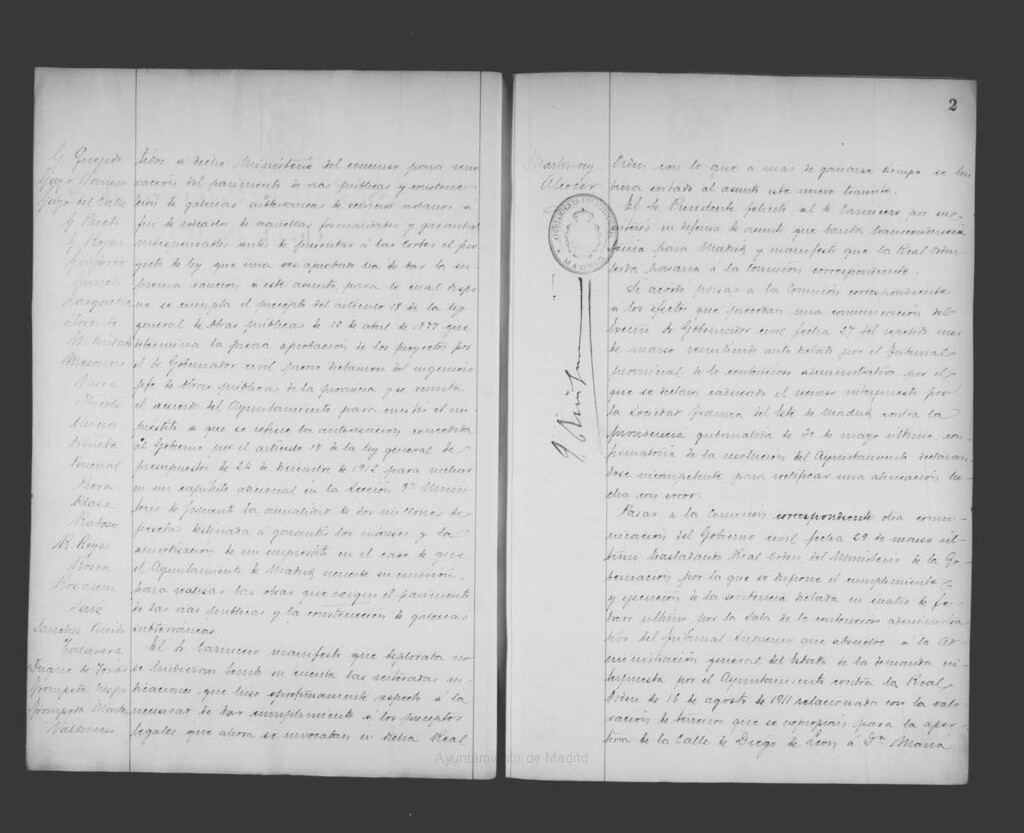 G. Quejido
Garay del Valle
G. Prieto
G. Rojas
Guijarro
Largacha
Llorente
Mesonero
Nicoli
Pascual
Plaza
Raboso
R. Reyes
Rosón
Sanz
Talavera
Duque de Tovar
Valdivieso
tidos á dicho Ministerio del concurso para reno-
vación del pavimento de vías públicas y construc-
ción de galerías subterráneas de servicios urbanos á
fin de rodarlos de aquellas formalidades y garantías
indispensables antes de presentar á las Cortes el pro-
yecto de ley que una vez aprobado ha de dar la su-
prema sanción á este asunto, para lo cual dispo-
ne se cumpla el precepto del artículo 18 de la ley
general de Obras públicas de 13 de abril de 1877 que
determina la previa aprobación de los proyectos por
el Sr Gobernador civil previo dictamen del ingeniero
jefe de Obras públicas de la provincia y se remita
el acuerdo del Ayuntamiento para emitir el em-
préstito á que se refiere la autorización concedida
al Gobierno por el artículo 18 de la ley general de
presupuestos de 24 de diciembre de 1912 para incluir
en un capítulo adicional en la Sección 8ª Minis-
terio de Fomento la anualidad de dos millones de
pesetas destinada á garantir los intereses y la
amortización de un empréstito en el caso de que
el Ayuntamiento de Madrid acuerde su emisión
para realizar las obras que exigen el pavimento
de las vías públicas y la construcción de galerías
subterráneas.
El Sr Carnicero manifestó que deploraba no
se hubieran tenido en cuenta las reiteradas in-
dicaciones que hizo oportunamente respecto á la
necesidad de dar cumplimiento á los preceptos
legales que ahora se invocaban en dicha Real
2
Alcocer
AYUNTAMIENTO CONSTITUCIONAL
MADRID
Orden con lo que á más de ganarse tiempo se hu-
biera evitado al asunto este nuevo trámite.
El Sr Presidente felicitó al Sr Carnicero por sus
gestiones en defensa de asunto que tanta transcendencia
tenía para Madrid y manifestó que la Real Orden
leída pasaría á la Comisión correspondiente.
Se acordó pasar á la Comisión correspondiente
á los efectos que procedan una comunicación del
Excmo Sr Gobernador civil fecha 27 del repetido mes
de marzo remitiendo auto dictado por el Tribunal
provincial de lo contencioso administrativo por el
que se declara caducado el recurso interpuesto por
la Sociedad franca del Este de Madrid contra la
providencia gubernativa de 30 de mayo último con-
firmatoria de la resolución del Ayuntamiento declarán-
dose incompetente para rectificar una alineación he-
cha con error.
Pasar á la Comisión correspondiente otra comu-
nicación del Gobierno civil fecha 29 de marzo úl-
timo trasladando Real Orden del Ministerio de la Go-
bernación por la que se dispone el cumplimiento
y ejecución de la sentencia dictada en cuatro de fe-
brero último por la sala de lo contencioso administra-
tivo del Tribunal Supremo que absuelve á la Ad-
ministración general del Estado de la demanda in-
terpuesta por el Ayuntamiento contra la Real
Orden de 16 de agosto de 1911 relacionada con la valo-
ración de terrenos que se expropian para la aper-
tura de la Calle de Diego de León á Dª María
Ayuntamiento de Madrid